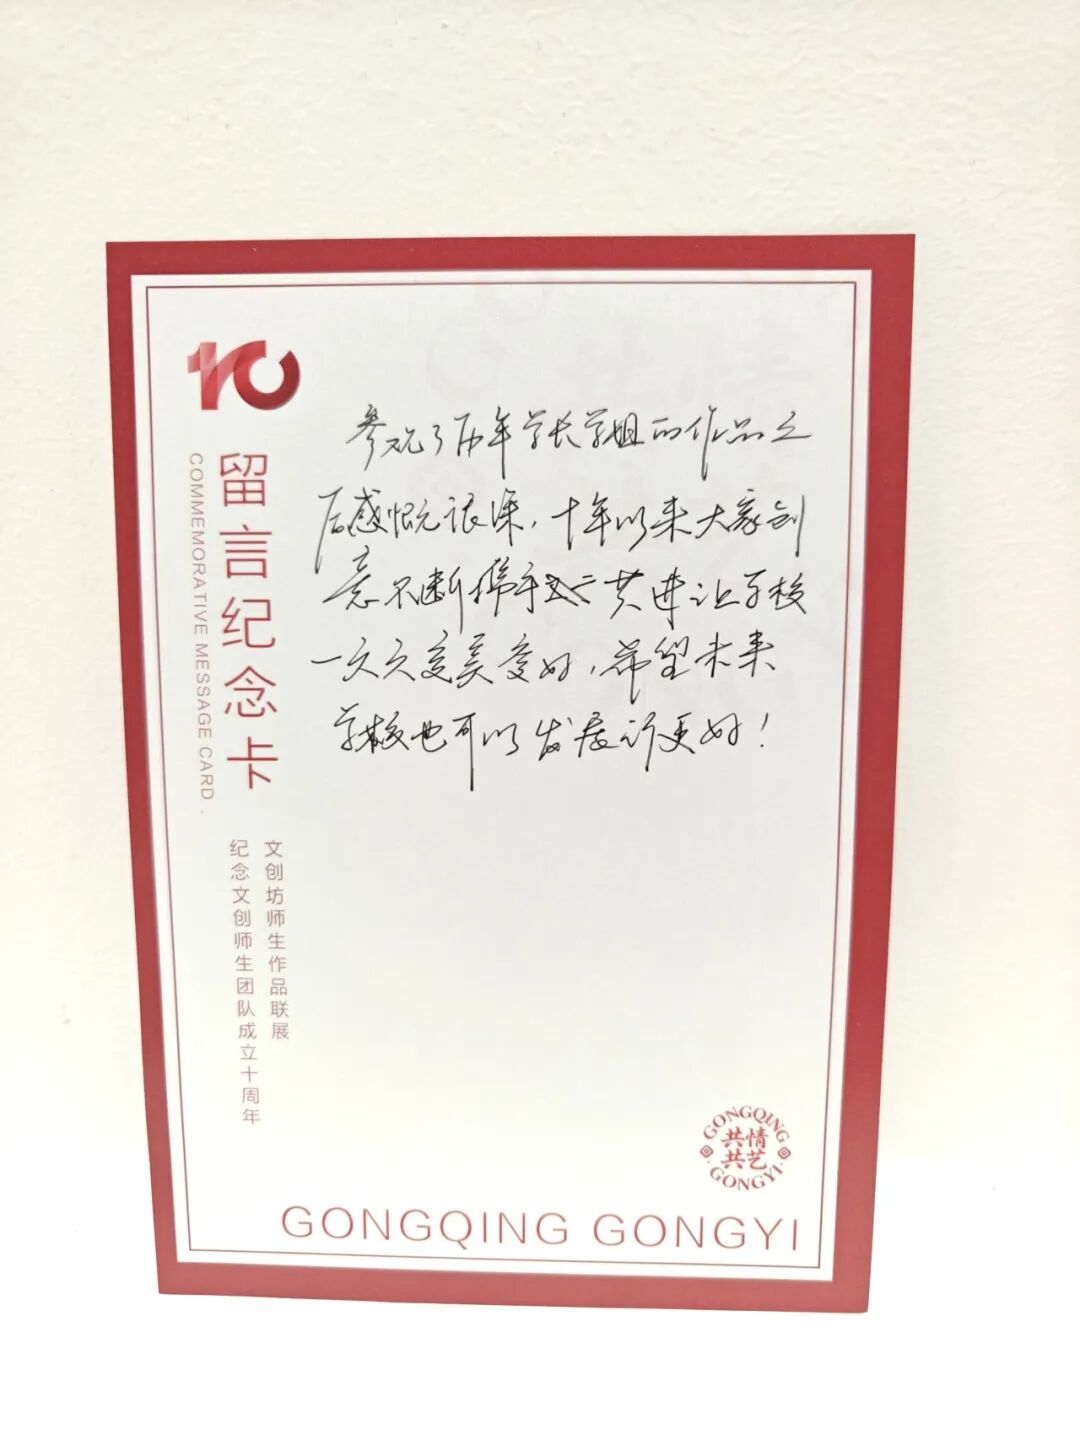 10
留言纪念卡
COMMEMORATIVE MESSAGE CARD
文创坊师生作品联展
纪念文创师生团队成立十周年
参观了历年学长学姐的作品之
后感慨很深，十年以来大家创
意不断携手共进让学校
一天天变美变好，希望未来
学校也可以发展的更好！
GONGQING
共情
共艺
GONGYI
GONGQING GONGYI